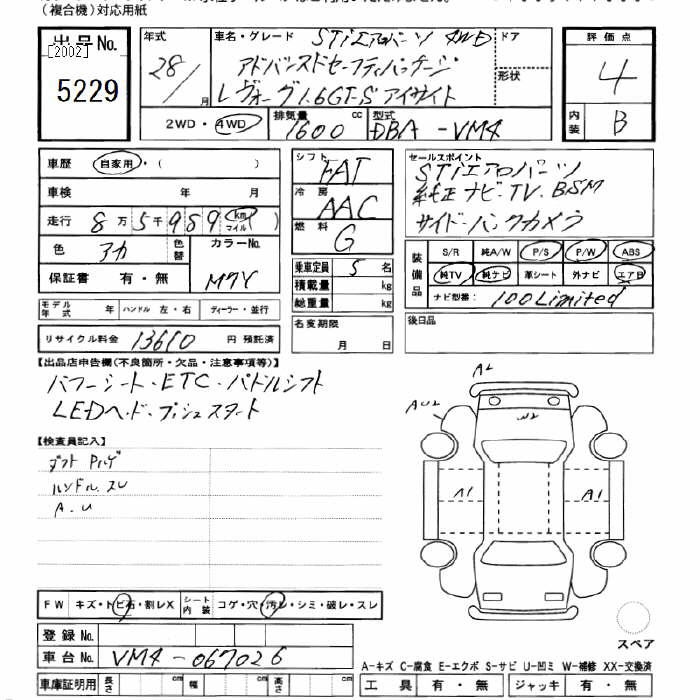 (複合機)対応用紙
出品No.
[2002]
5229
年式
28/月
車名・グレード STIエアロパーツ 4WD
アドバンスドセーフティパッケージ
レヴォーグ1.6GT-Sアイサイト
ドア
形状
2WD・4WD
排気量 1600 cc
型式 DBA-VM4
評価点
4
内装 B
車歴 自家用・( )
車検 年 月
走行 8万5千989 (km マイル)
色 アカ 色替 カラーNo.
保証書 有・無 M7Y
モデル年式 年 ハンドル 左・右 ディーラー・並行
リサイクル料金 13610 円 預託済
シフト FAT
冷房 AAC
燃料 G
乗車定員 5名
積載量 kg
総重量 kg
名変期限
月 日
セールスポイント
STIエアロパーツ
純正ナビ・TV・BSM
サイド・バックカメラ
装備品
S/R 純A/W P/S P/W ABS
純TV 純ナビ 革シート 外ナビ エアB
ナビ型番: 100Limited
後日品
【出品店申告欄(不良箇所・欠品・注意事項等)】
パワーシート・ETC・パドルシフト
LEDヘッド・プッシュスタート
【検査員記入】
ハンドルスレ
A.U
A2
AU2
W2
A1
A1
FW キズ・トビ石・割レX シート内装 コゲ・穴・汚レ・シミ・破レ・スレ
登録No.
車台No. VM4-067026
車庫証明用 長さ cm 幅 cm 高さ cm
スペア
A-キズ C-腐食 E-エクボ S-サビ U-凹ミ W-補修 XX-交換済
工具 有・無 ジャッキ 有・無